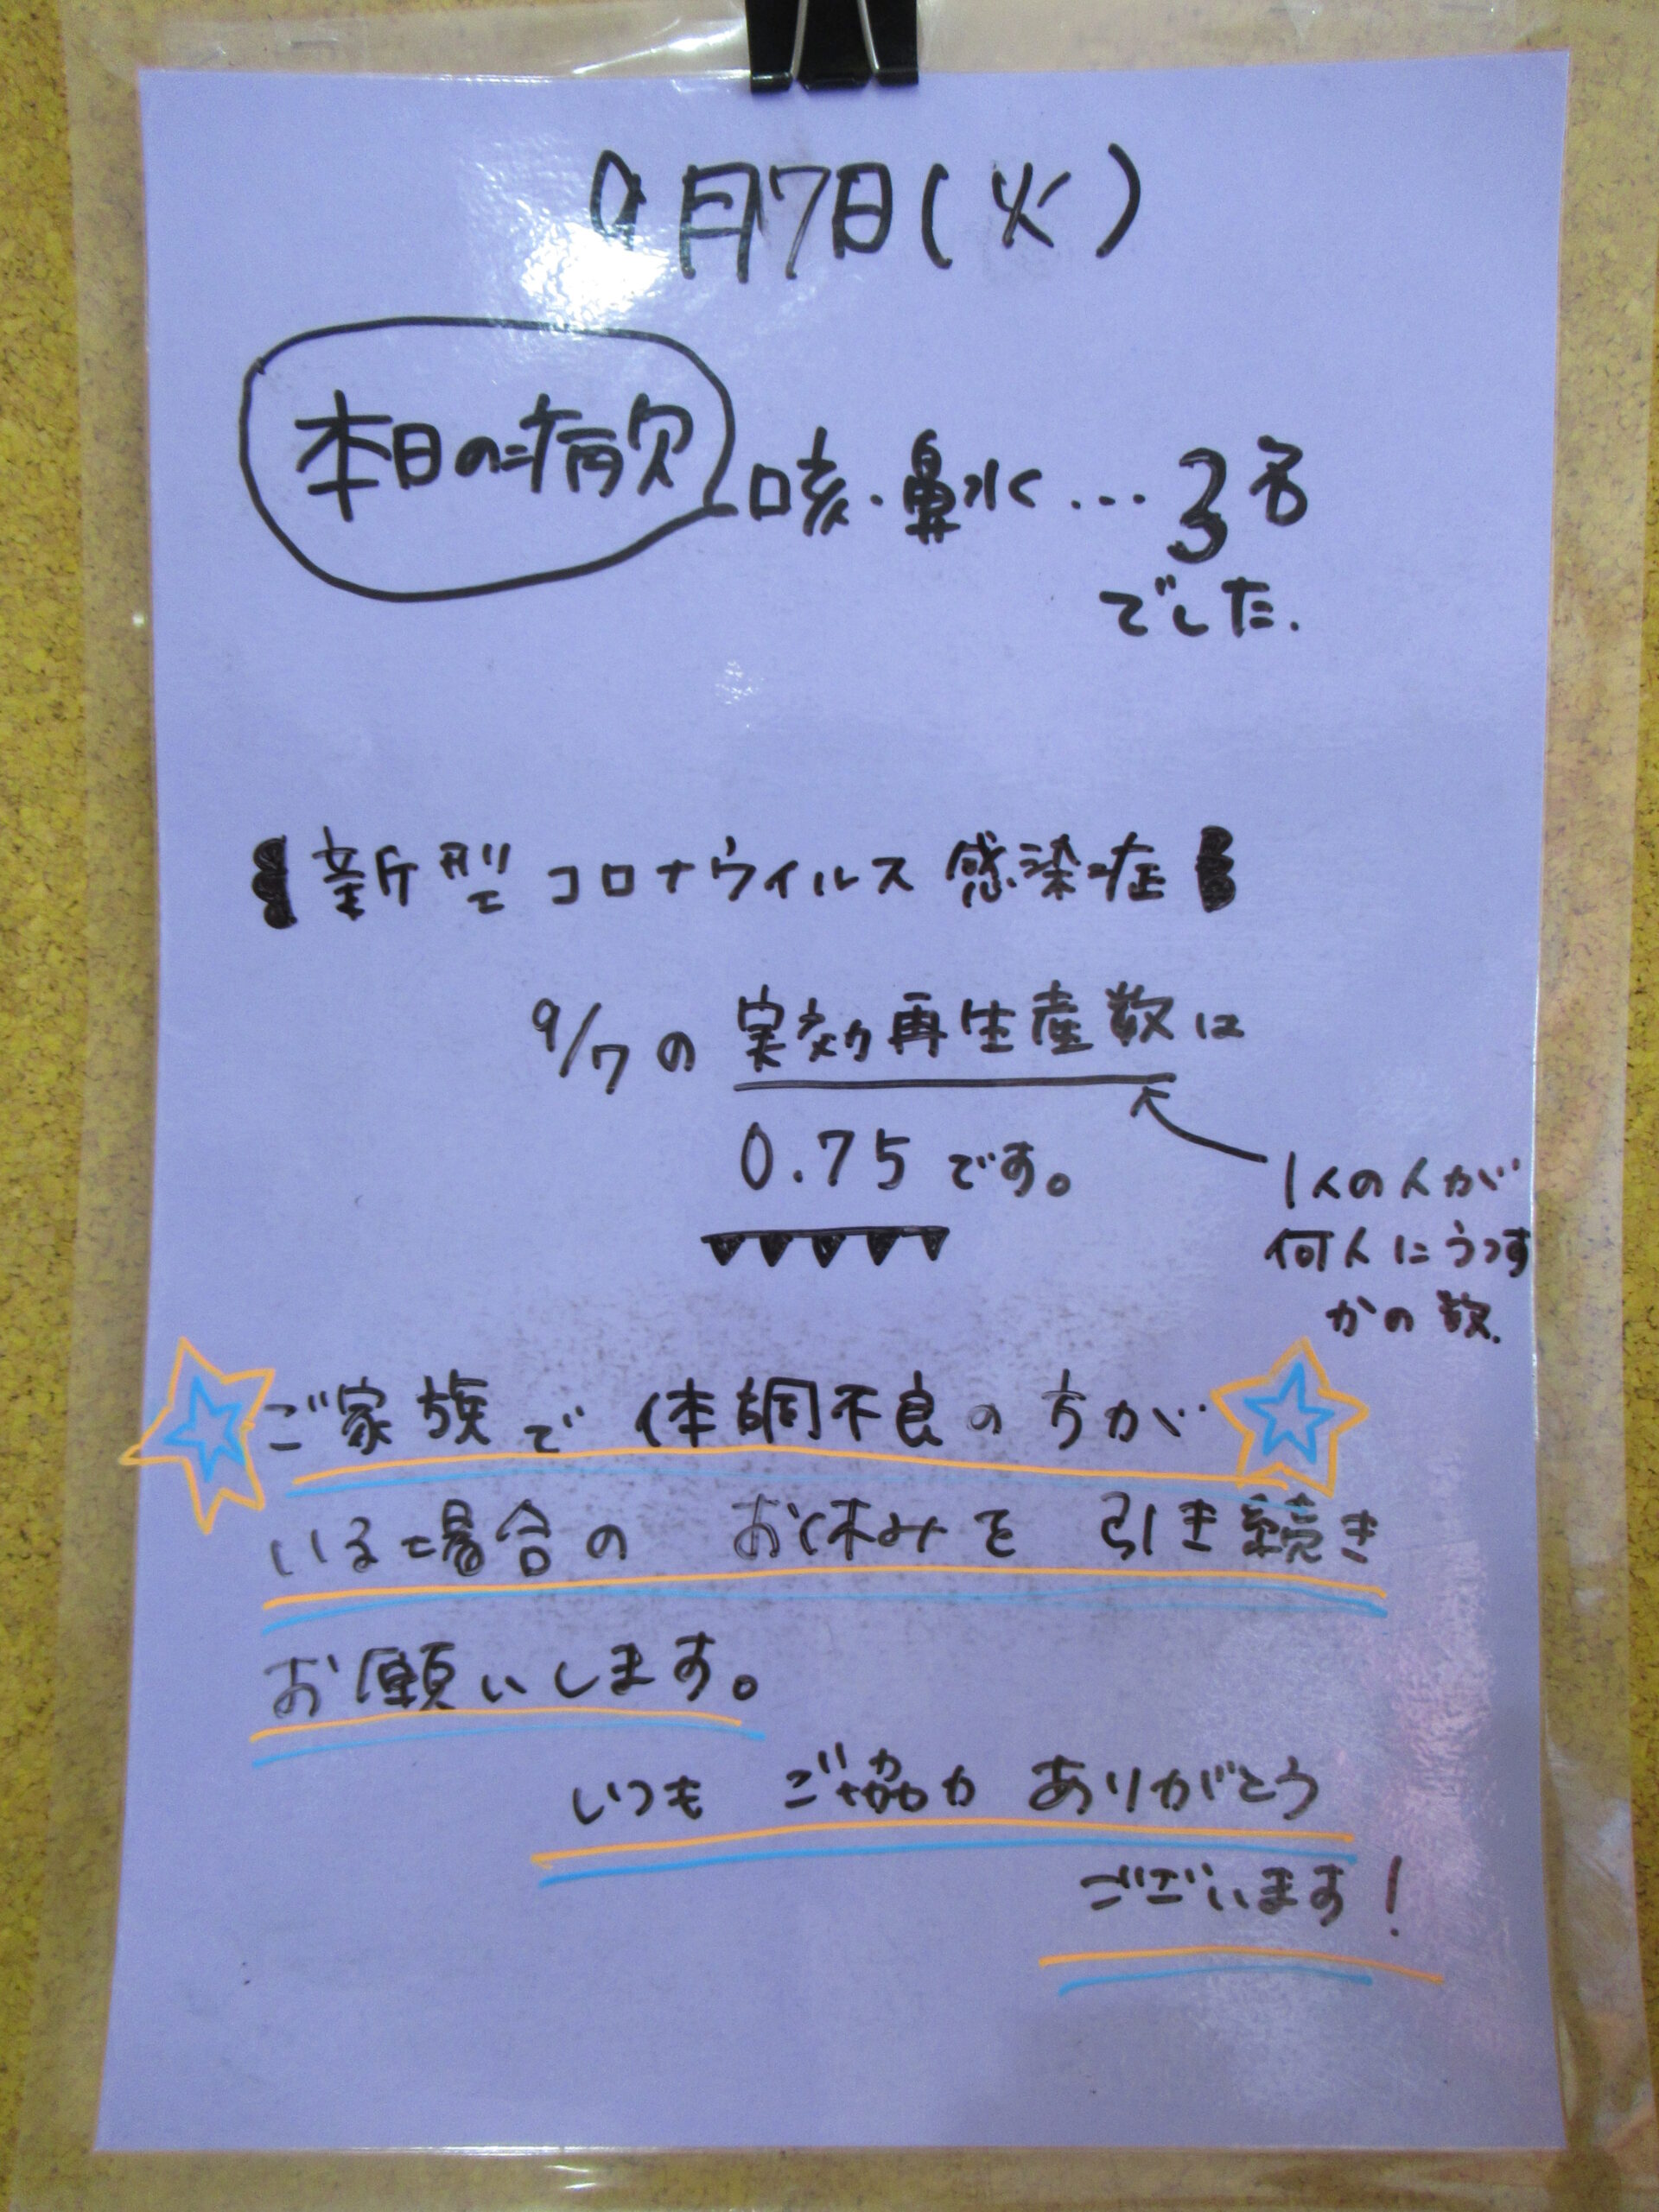 9月7日(火)
本日の病欠 咳・鼻水…3名
でした.
新型コロナウイルス感染症
9/7の 実効再生産数は
0.75です。
1人の人が
何人にうつす
かの数.
ご家族で 体調不良の方が
いる場合の お休みを 引き続き
お願いします。
いつも ご協力 ありがとう
ございます!